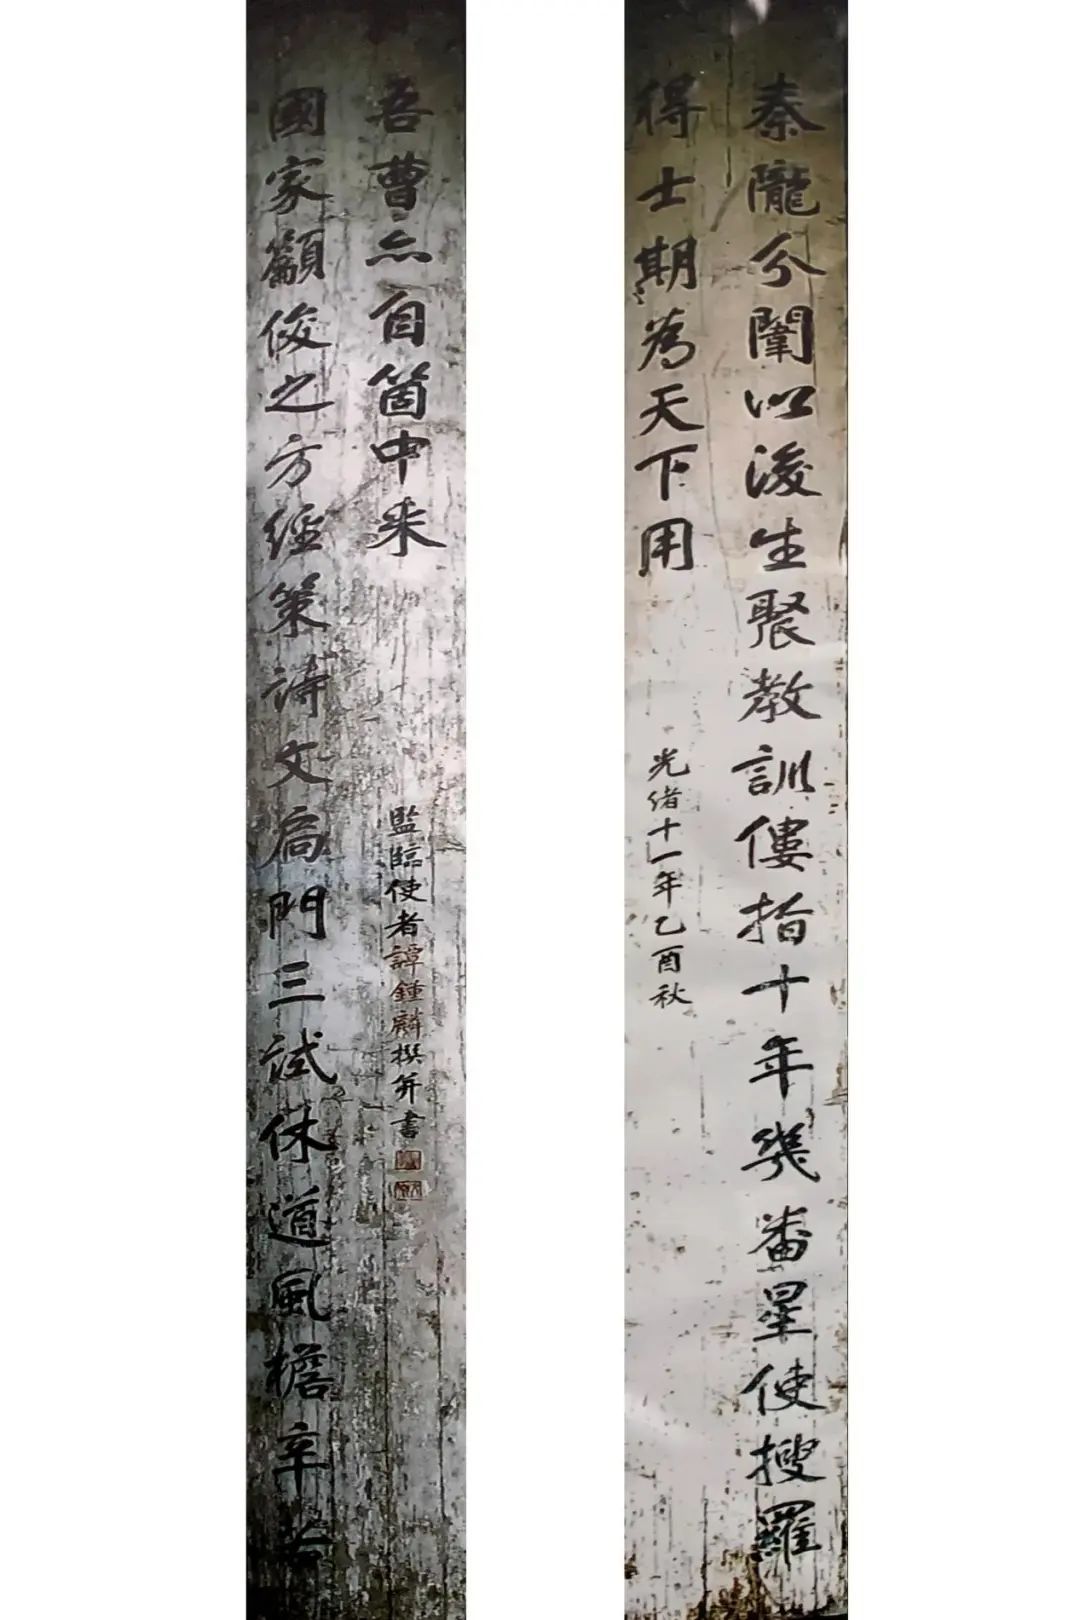 秦隴分闈以後生聚教訓僂指十年幾番星使搜羅
得士期為天下用
光緒十一年乙酉秋
國家籲俊之方經策詩文扃門三試休道風檐辛苦
吾曹亦自箇中来
監臨使者譚鍾麟撰并書